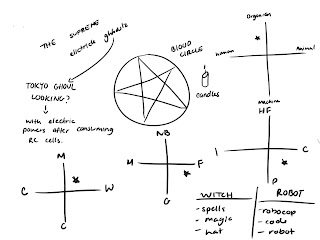 THE SUPREME
electrick ghouls
TOKYO GHOUL
LOOKING?
with electric
powers after consuming
RC cells.
BLOOD
CIRCLE
candles
Organism
Human
Animal
Machine
M
C
W
C
NB
M
F
G
HF
I
C
P
WITCH
- spells
- magic
- hat
ROBOT
- robocop
- code
- robot